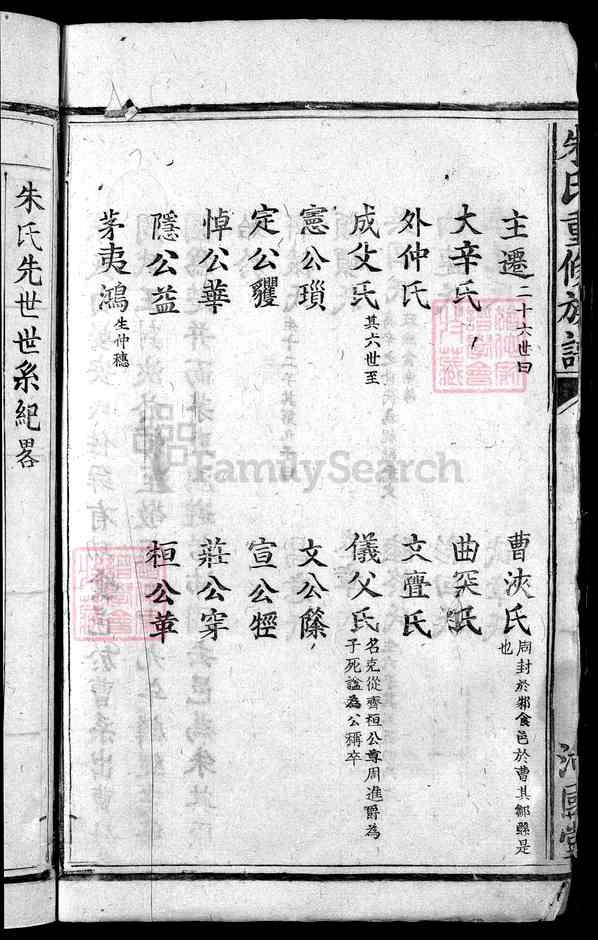 朱氏重修族譜
主遷 二十六世曰
曹浹氏 周封於邾食邑於曹其鄒縣是也
大辛氏
曲突氏
外仲氏
文亹氏
成父氏 其六世至
儀父氏 名克從齊桓公尊周進爵為子死諡為公稱卒
憲公瑣
文公蘧
定公貜
宣公牼
悼公華
莊公穿
隱公益
桓公革
茅夷鴻 生仲穗
朱氏先世世系紀畧
FamilySearch